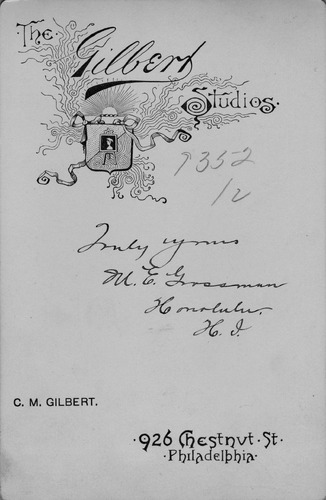 The
Gilbert
Studios.
9352
/2
Truly yours
M. E. Grossman
Honolulu.
H. I.
C. M. GILBERT.
·926 Chestnut·St·
·Philadelphia·